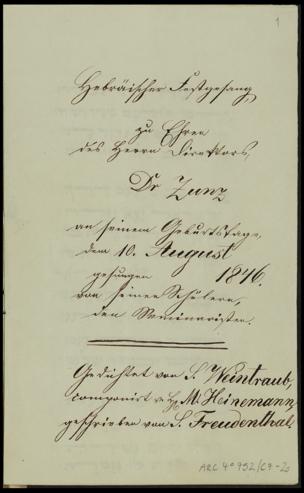 1
Hebräischer Festgesang
zu Ehren
des Herrn Direktors,
Dr Zunz
an seinem Geburtstage,
dem 10. August
gesungen 1846.
von seinen Schülern,
den Seminaristen.
Gedichtet von S. Weintraub,
componirt v. H. M. Heinemann,
geschrieben von S. Freudenthal
ARC 4° 792/C9-2